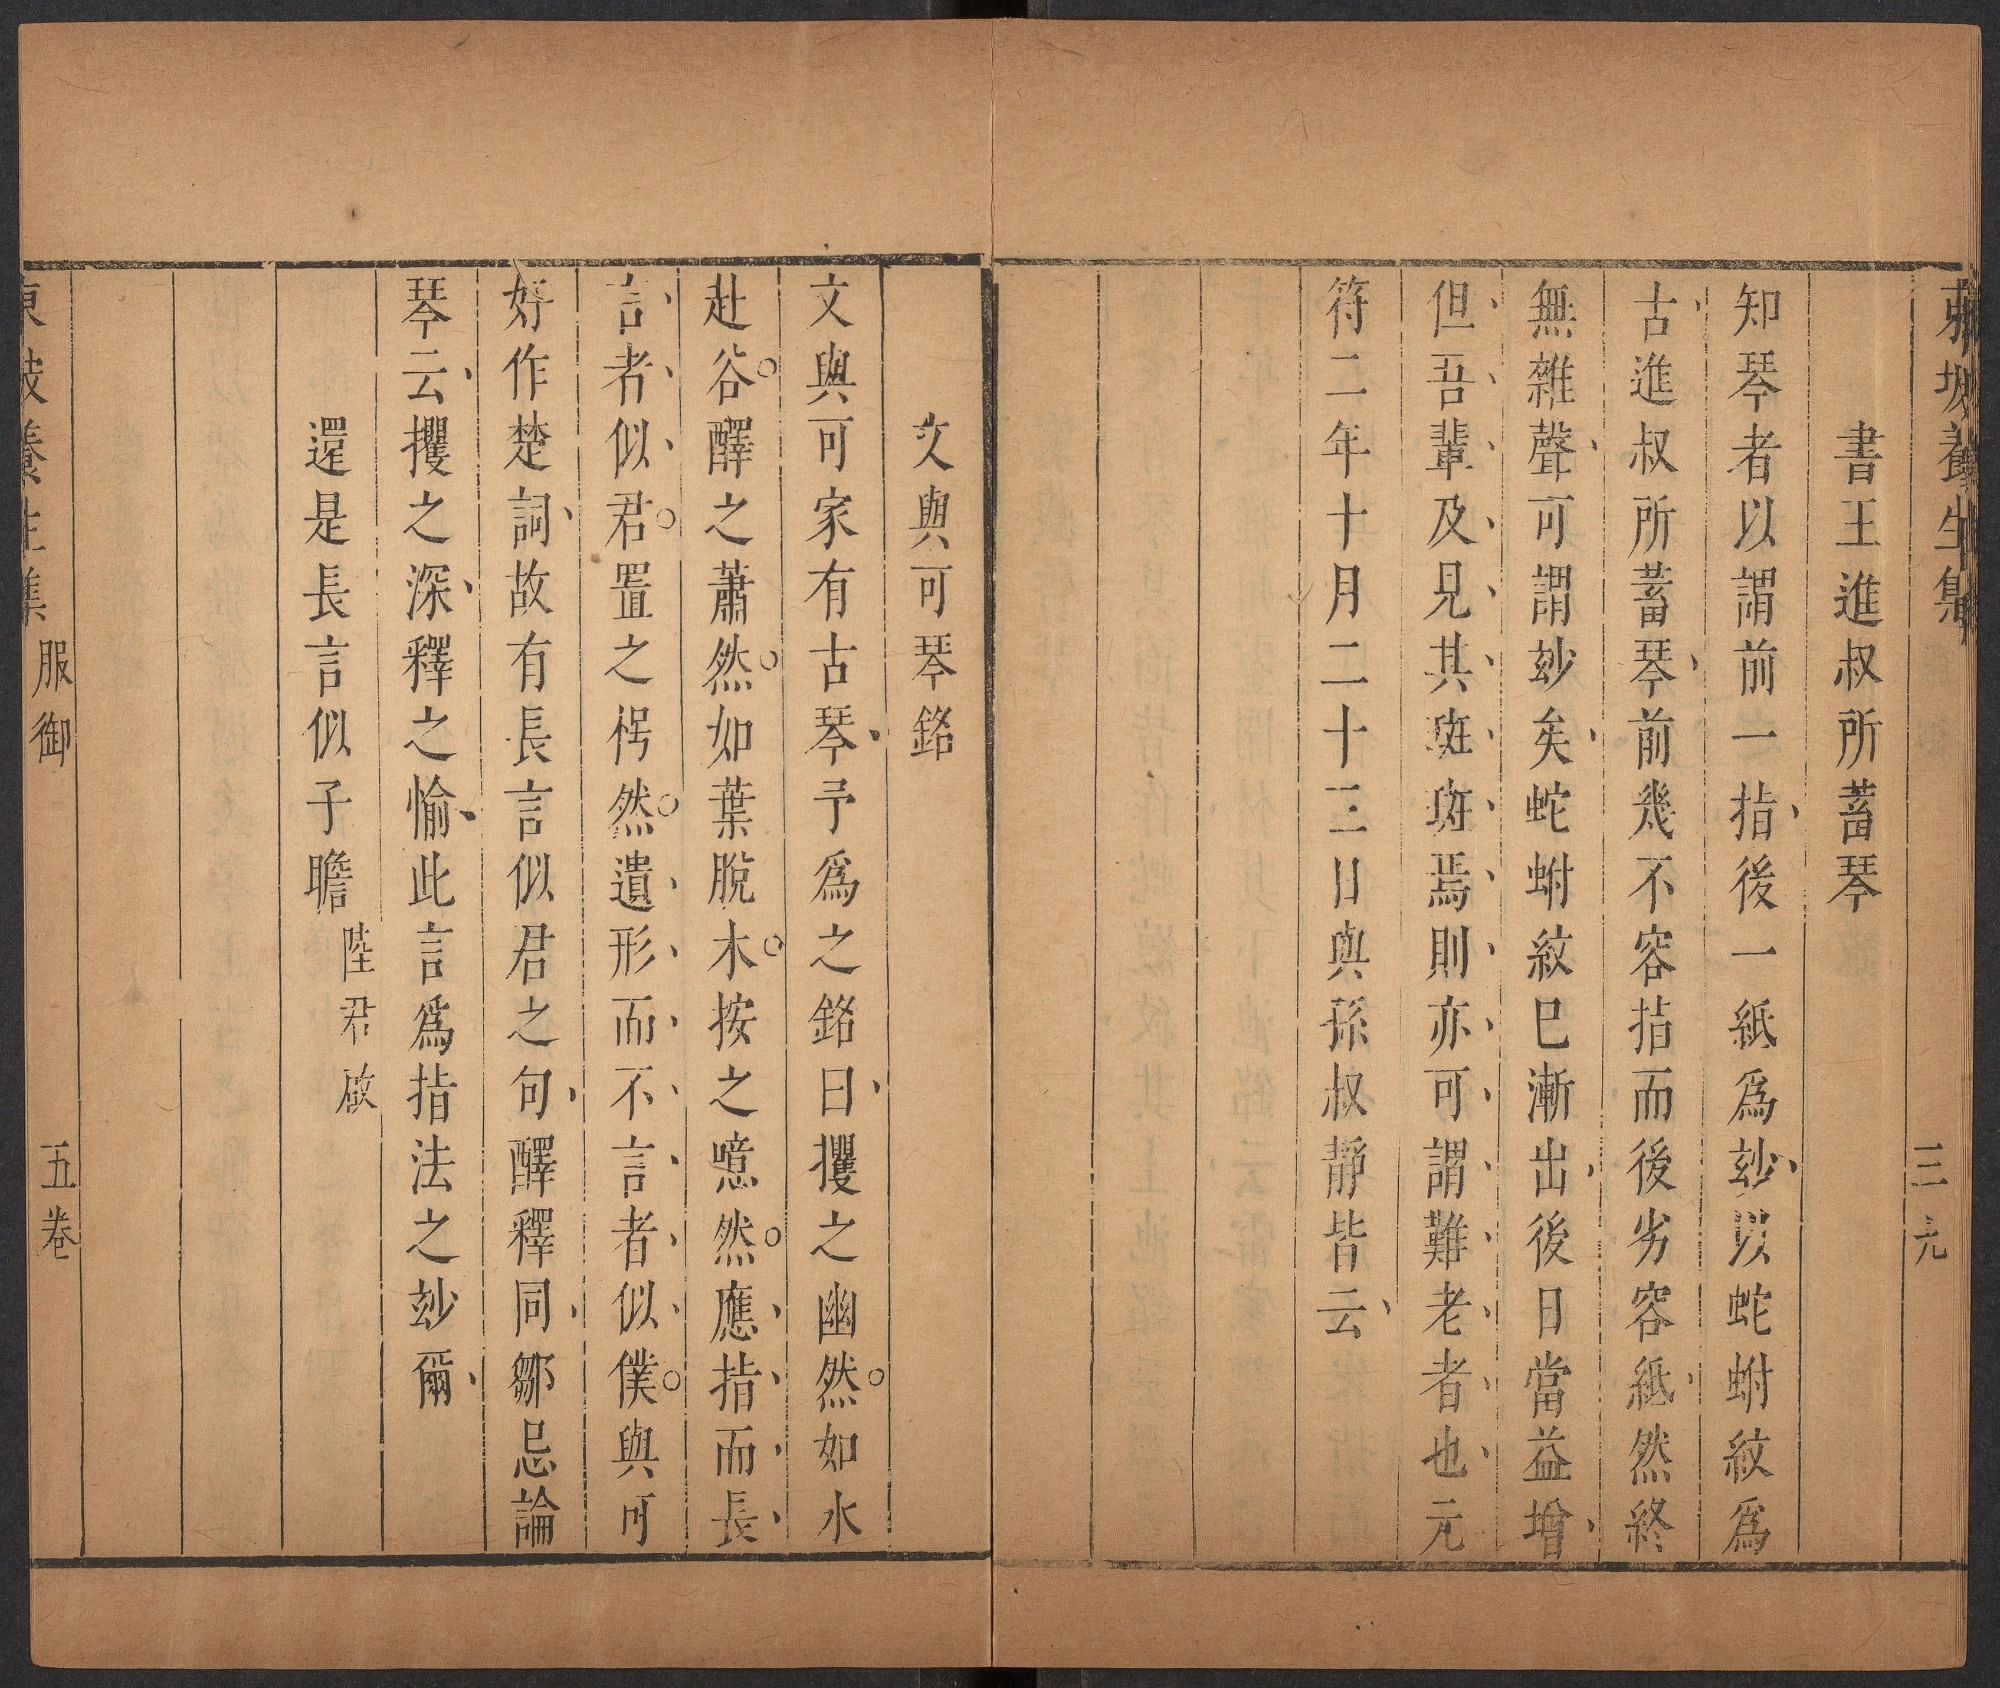 東坡養生集
三九
書王進叔所蓄琴
知琴者以謂前一指後一紙爲玅以蛇蚹紋爲
古進叔所蓄琴前幾不容指而後劣容紙然終
無雜聲可謂玅矣蛇蚹紋巳漸出後日當益增
但吾輩及見其斑斑焉則亦可謂難老者也元
符二年十月二十三日與孫叔靜皆云
文與可琴銘
文與可家有古琴予爲之銘曰攫之幽然如水
赴谷醳之蕭然如葉脫木按之噫然應指而長
言者似君置之枵然遺形而不言者似僕與可
好作楚詞故有長言似君之句醳釋同鄒忌論
琴云攫之深釋之愉此言爲指法之玅爾
還是長言似子瞻 陸君啟
東坡養生集 服御 五卷